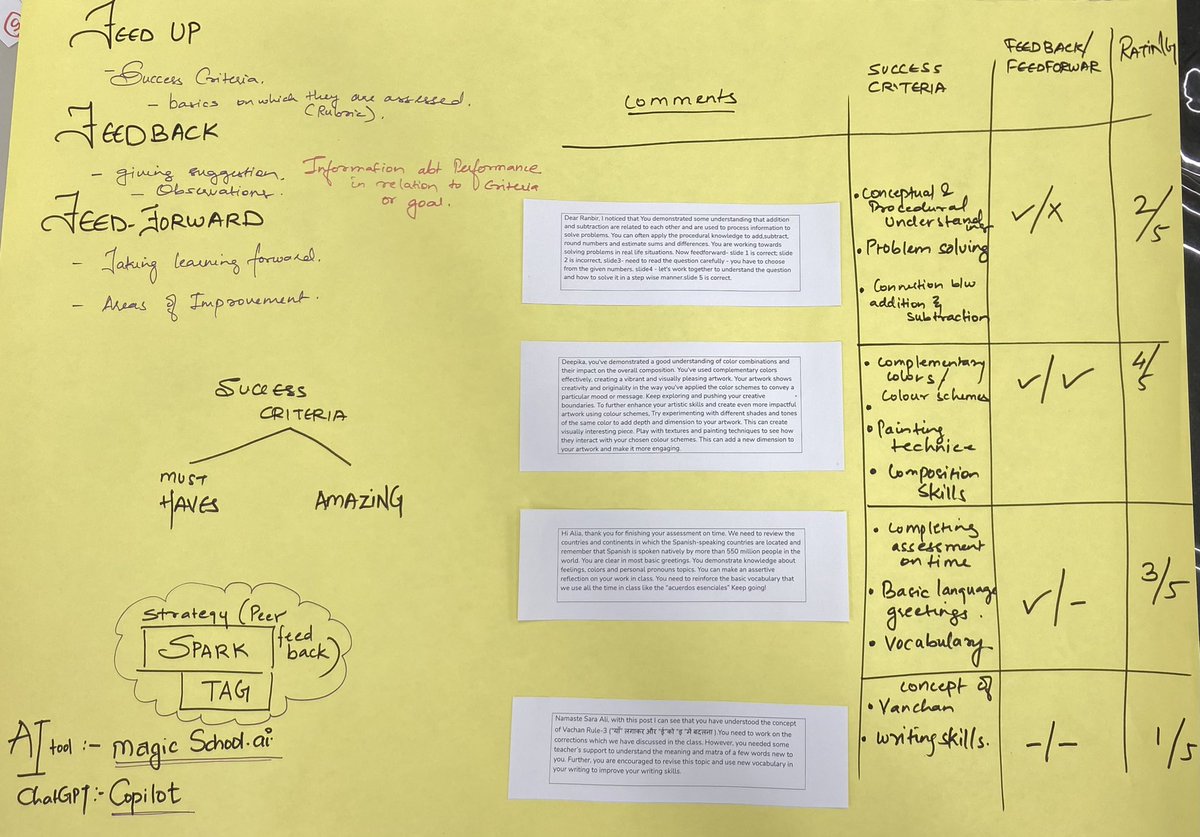 FEED UP
- Success Criteria.
- basics on which they are assessed.
(Rubric).
FEEDBACK
- giving suggestion.
- Observations.
Information abt Performance
in relation to Criteria
or goal.
FEED-FORWARD
- Taking learning forward.
- Areas of Improvement.
SUCCESS
CRITERIA
MUST
HAVES
AMAZING
Strategy (Peer
feed
back)
SPARK
TAG
AI tool :- Magic School.ai
ChatGPT :- Copilot
Comments
SUCCESS
CRITERIA
FEEDBACK/
FEEDFORWAR
RATING
Dear Ranbir, I noticed that You demonstrated some understanding that addition
and subtraction are related to each other and are used to process information to
solve problems. You can often apply the procedural knowledge to add,subtract,
round numbers and estimate sums and differences. You are working towards
solving problems in real life situations. Now feedforward- slide 1 is correct; slide
2 is incorrect, slide3- need to read the question carefully - you have to choose
from the given numbers. slide4 - let's work together to understand the question
and how to solve it in a step wise manner.slide 5 is correct.
• Conceptual &
Procedural
Understanding
• Problem solving
• Connection b/w
addition &
Subtraction
✓/x
2/5
Deepika, you've demonstrated a good understanding of color combinations and
their impact on the overall composition. You've used complementary colors
effectively, creating a vibrant and visually pleasing artwork. Your artwork shows
creativity and originality in the way you've applied the color schemes to convey a
particular mood or message. Keep exploring and pushing your creative
boundaries. To further enhance your artistic skills and create even more impactful
artwork using colour schemes. Try experimenting with different shades and tones
of the same color to add depth and dimension to your artwork. This can create
visually interesting piece. Play with textures and painting techniques to see how
they interact with your chosen colour schemes. This can add a new dimension to
your artwork and make it more engaging.
• Complementary
colors/
Colour schemes
• Painting
technice
• Composition
skills
✓/✓
4/5
Hi Alia, thank you for finishing your assessment on time. We need to review the
countries and continents in which the Spanish-speaking countries are located and
remember that Spanish is spoken natively by more than 550 million people in the
world. You are clear in most basic greetings. You demonstrate knowledge about
feelings, colors and personal pronouns topics. You can make an assertive
reflection on your work in class. You need to reinforce the basic vocabulary that
we use all the time in class like the "acuerdos esenciales" Keep going!
• Completing
assessment
on time
• Basic language
greetings.
• Vocabulary
✓/-
3/5
Namaste Sara Ali, with this post I can see that you have understood the concept
of Vachan Rule-3 ("याँ" लगाकर और "ई"को "इ "में बदलना ).You need to work on the
corrections which we have discussed in the class. However, you needed some
teacher's support to understand the meaning and matra of a few words new to
you. Further, you are encouraged to revise this topic and use new vocabulary in
your writing to improve your writing skills.
concept of
• Vanchan
• writing skills.
-/-
1/5